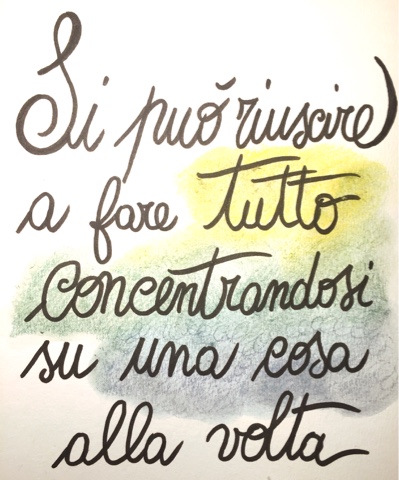 Si può riuscire
a fare tutto
concentrandosi
su una cosa
alla volta